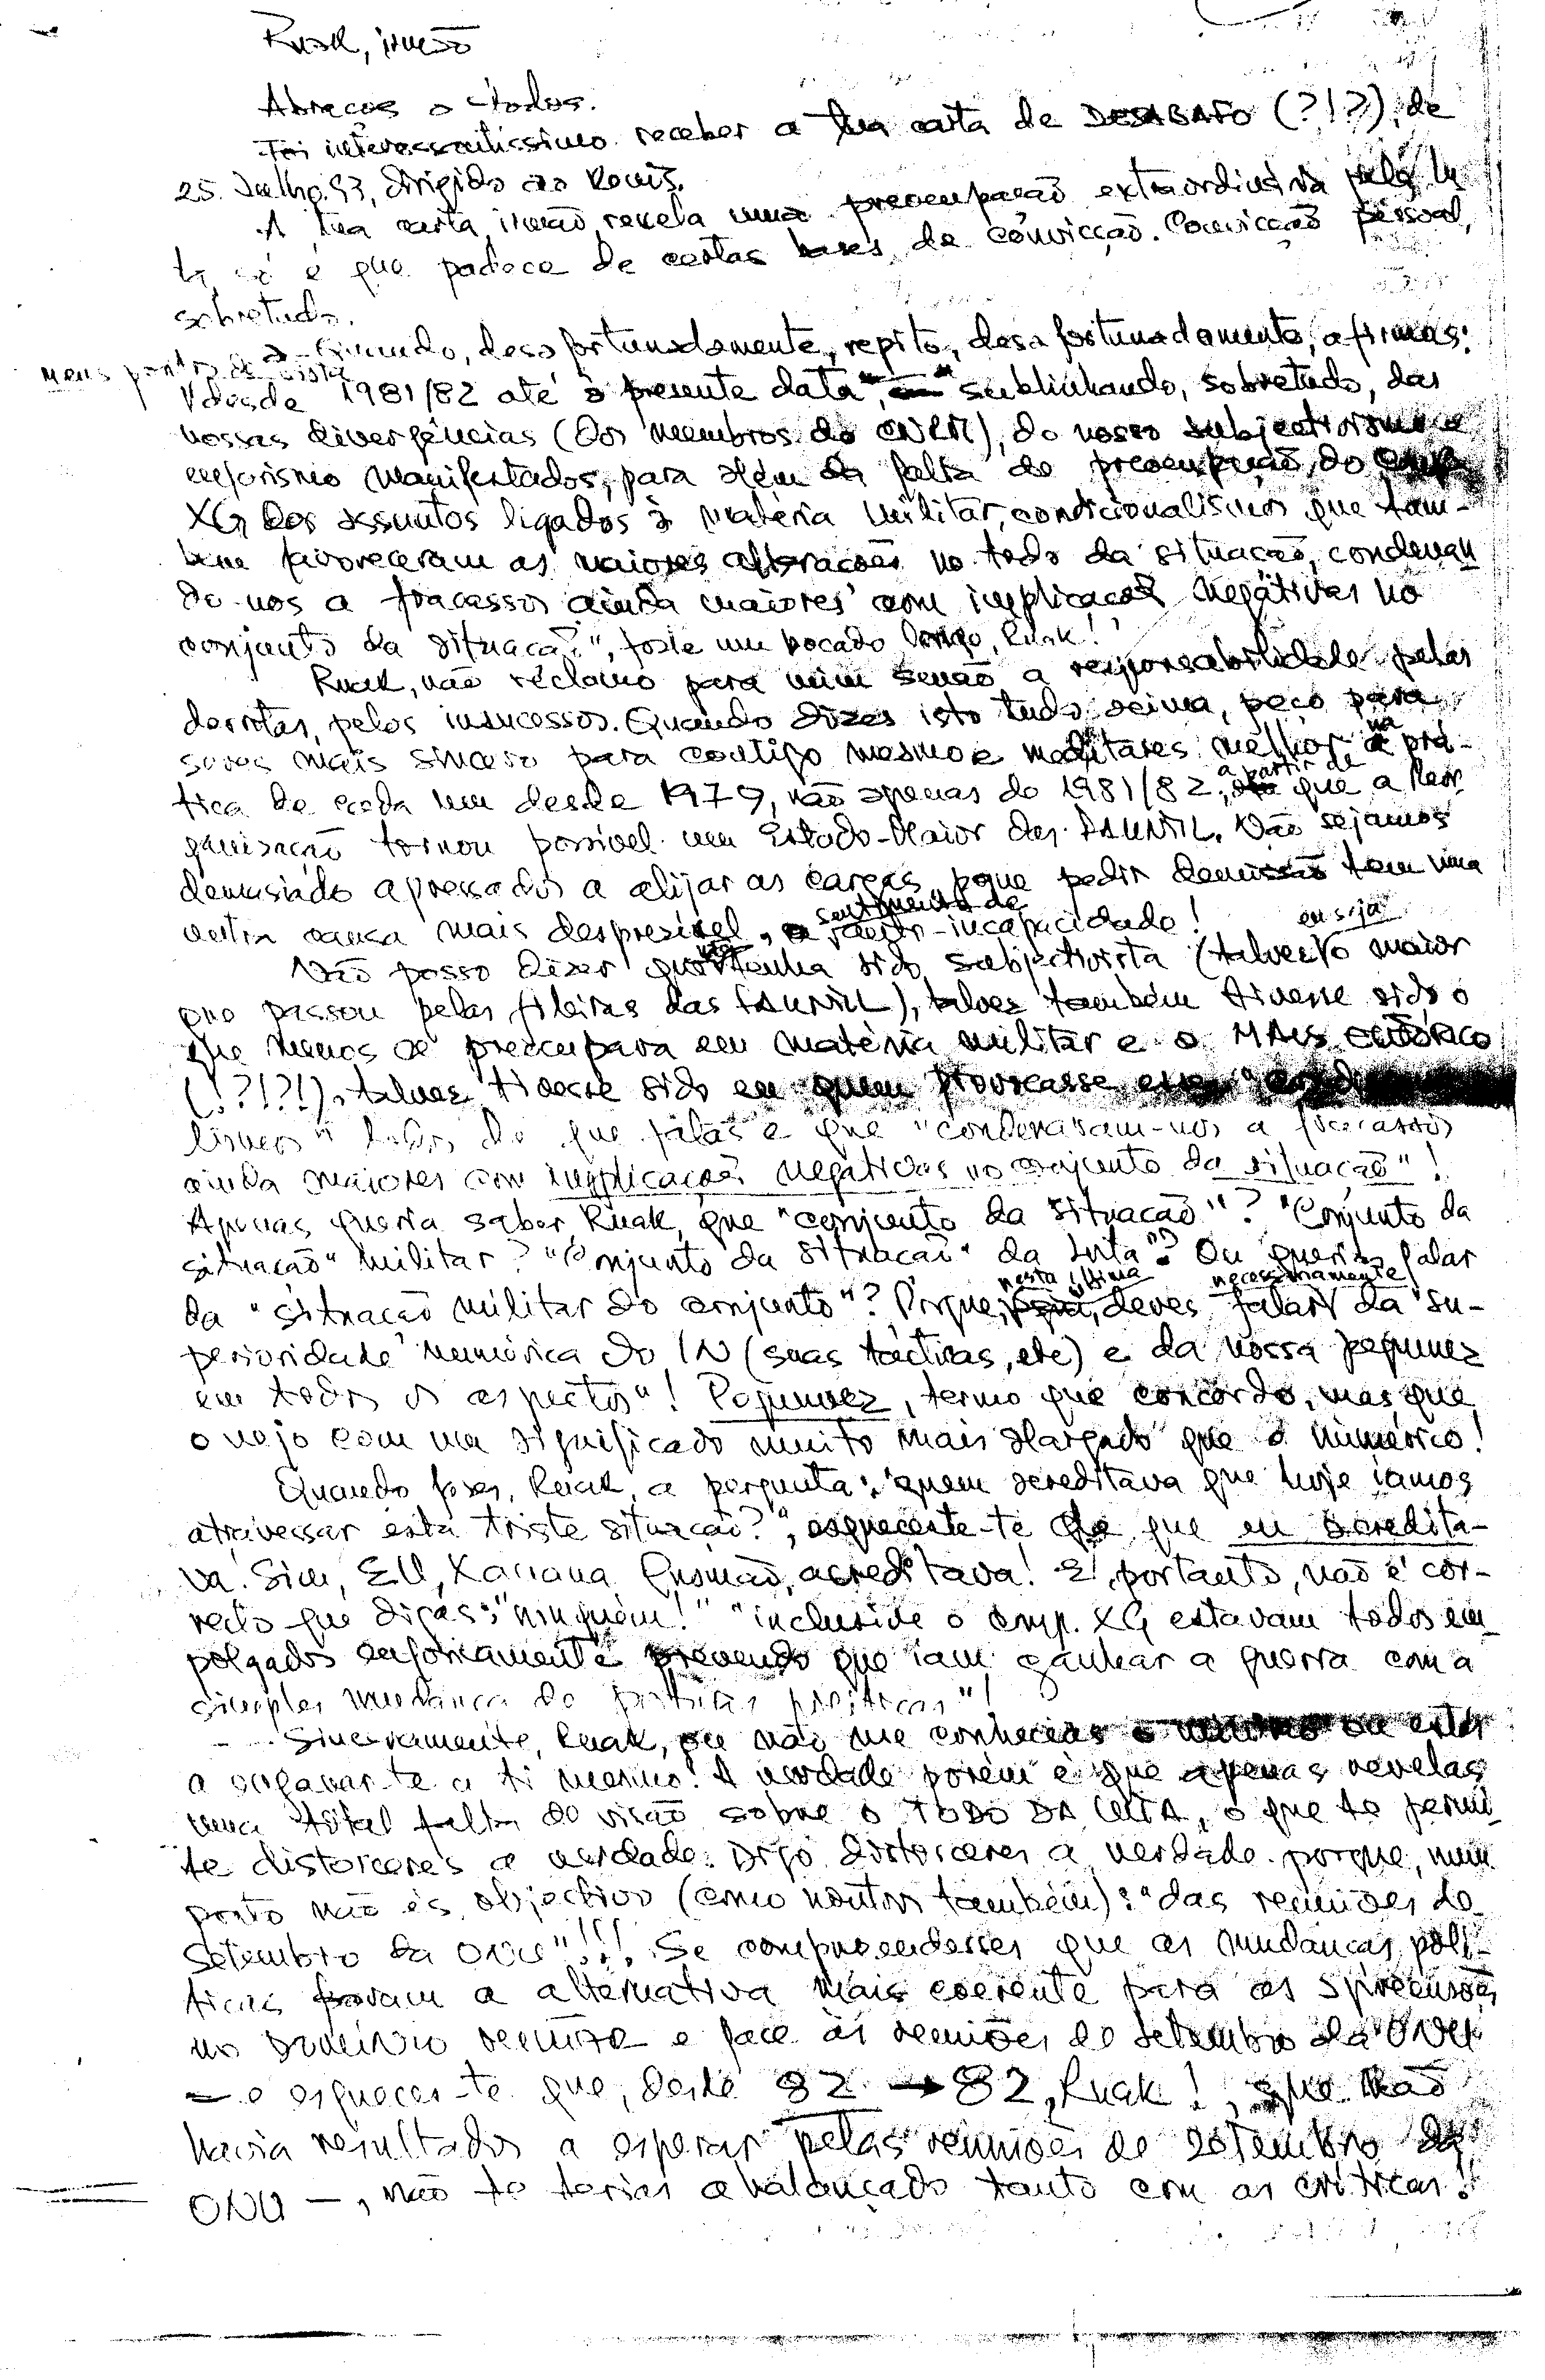 Ruak, irmão
Abraços a todos.
Foi interessantíssimo receber a tua carta de DESABAFO (?!?), de
25. Julho. 93, dirigido ao Konis.
A tua carta, irmão, revela uma preocupação extraordinária pela lu
ta, só é que padece de certas bases de convicção. Convicção pessoal,
sobretudo.
Quando, desafortunadamente, repito, desafortunadamente, afirmas:
meus pontos de vista
desde 1981/82 até à presente data", sublinhando, sobretudo, das
nossas divergências (dos membros do CNRM), do nosso subjectivismo e
euforismo manifestados, para além da falta de preocupação, do
XG, dos assuntos ligados à matéria militar, condicionalismos que tam-
bém favoreceram as maiores alterações no todo da situação, condenan
do-nos a fracassos ainda maiores com implicações negativas no
conjunto da situação", foste um bocado longo, Ruak!
Ruak, não reclamo para mim senão a responsabilidade pelas
derrotas, pelos insucessos. Quando dizes isto tudo acima, peço para
seres mais sincero para contigo mesmo e meditares melhor na prá-
tica de cada um desde 1979, não apenas de 1981/82, a partir de que a Reor
ganização tornou possível um Estado-Maior das FALINTIL. Não sejamos
demasiado apressados a alijar as cargas, pque pedir demissão tem uma
outra causa mais desprezível, o sentimento de auto-incapacidade!
Não posso dizer que não tenha sido subjectivista (talvez eu seja o maior
que passou pelas fileiras das FALINTIL), talvez também tivesse sido o
que menos se preocupara em matéria militar e o MAIS EUFÓRICO
(!?!?!), talvez tivesse sido eu quem provocasse esses
lismos" todos de que falas e que "condenavam-nos a fracassos
ainda maiores com implicações negativas no conjunto da situação"!
Apenas queria saber Ruak, que "conjunto da situação"? "Conjunto da
situação" militar? "Conjunto da situação" da luta"? Ou querias falar
da "situação militar do conjunto"? Porque, nesta última, deves necessariamente falar da "su-
perioridade numérica do IN (suas tácticas, etc) e da nossa pequenez
em todos os aspectos"! Pequenez, termo que concordo, mas que
o vejo com um significado muito mais alargado que o numérico!
Quando fazes, Ruak, a pergunta: "quem acreditava que hoje íamos
atravessar esta triste situação?", esqueceste-te de que eu acredita-
va. Sim, EU, Xanana Gusmão, acreditava! E, portanto, não é cor-
recto que digas: "ninguém!" "inclusive o cmp. XG estavam todos em
polgados euforicamente prevendo que iam ganhar a guerra com a
simples mudança de posturas políticas"!
Sinceramente, Ruak, ou não me conhecias o mínimo ou estás
a enganar-te a ti mesmo! A verdade porém é que apenas revelas
uma total falta de visão sobre o TODO DA LUTA, o que te permi
te distorceres a verdade. Digo distorceres a verdade porque, num
ponto não és objectivo (como noutros também): "das reuniões de
Setembro da ONU"!!!. Se compreendesses que as mudanças polí-
ticas foram a alternativa mais coerente para as
no e face às reuniões de Setembro da ONU
— e esqueces-te que, desde 82 → 82, Ruak!, que não
havia resultados a esperar pelas reuniões de Setembro da
ONU —, não te terias abalançado tanto com as críticas!